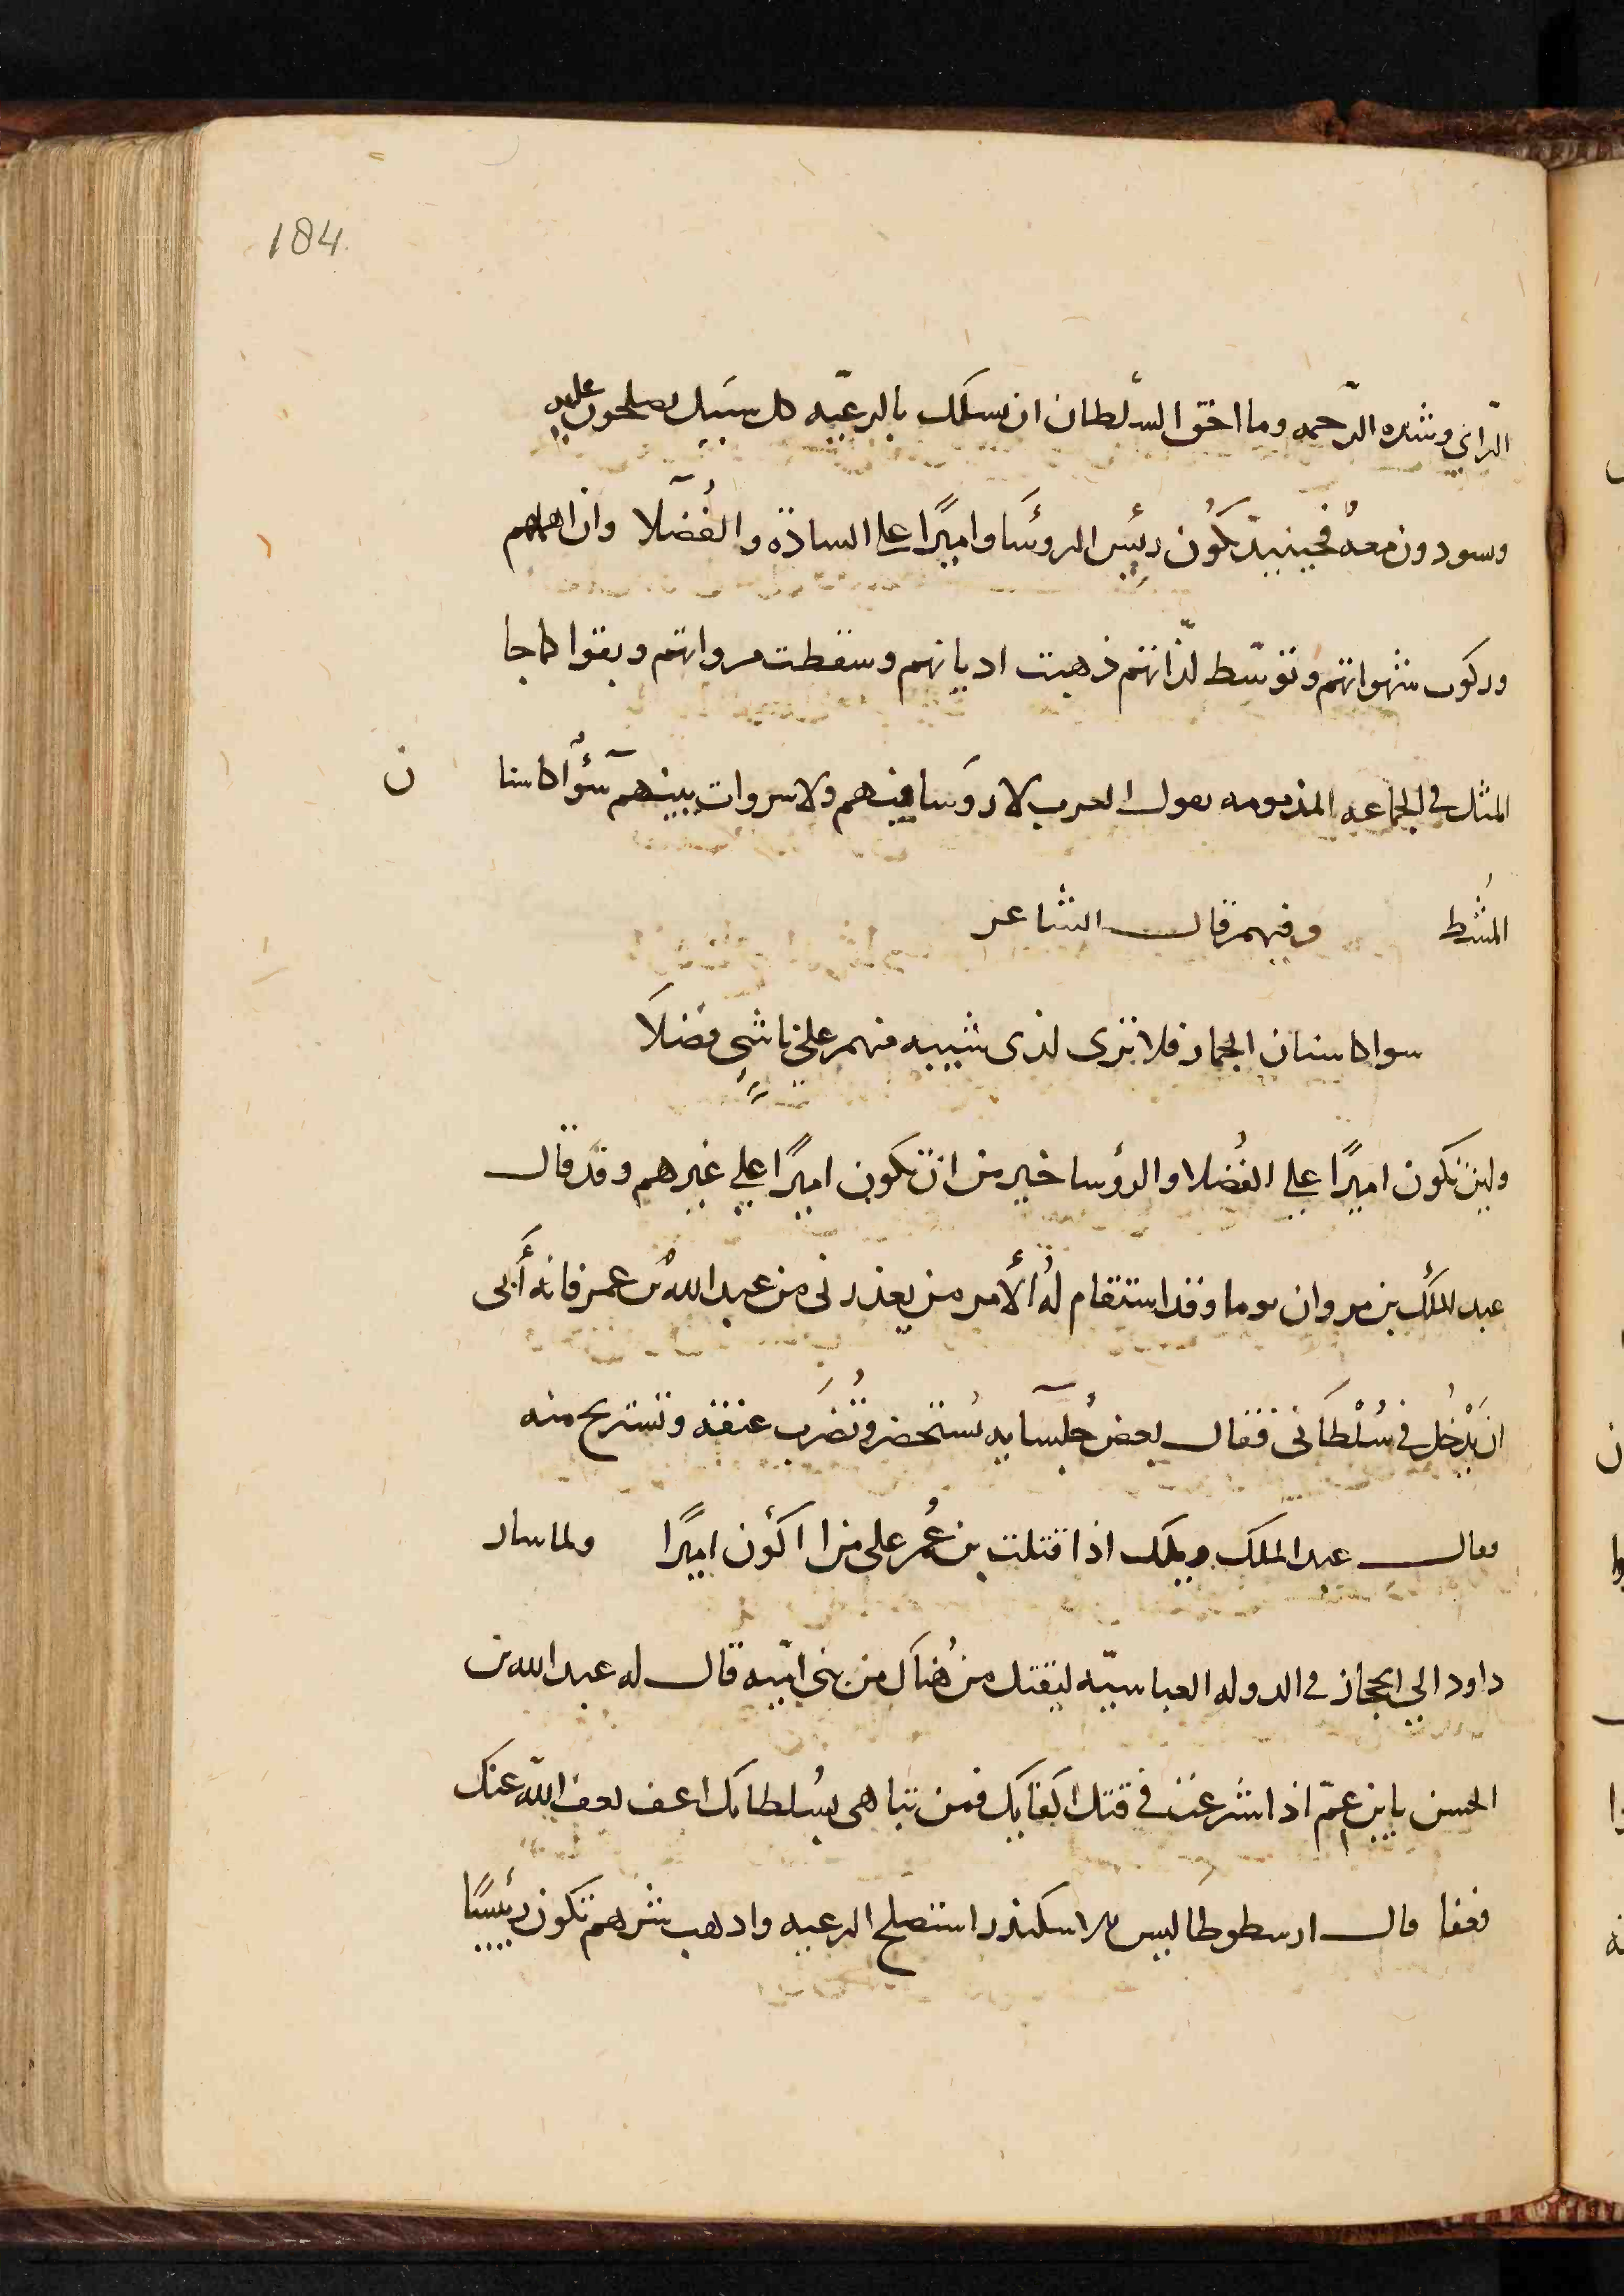 184.
الراي وشده الرّحمه وما احق السلطان ان يسلك بالرعيّه كل سبيل يصلحون عليه
وسودون معهُ فحينيذ يكُون رئيس الروسَا واميرًا علي السادة والفُضلا وان اهملهم
وركوب شهواتهم وتوسّط لذّاتهم ذهبت اديانهم وسقطت مرواتهم وبقوا كما جا
المثل في الجماعه المذمومه يعول العرب لا روسا فيهم ولا سروات بينهم سَوا كاسنا ن
المُشط وفيهم قال الشاعر
سوا كاسنان الحمار فلا ترى لذى شيبه منهم على ناشيٍ فضلاَ
ولين تكون اميرًا علي الفُضلا والرؤسا خير من ان تكون اميرًا علي غيرهم وقد قال
عبد الملك بن مروان يوما وقد استقام لهُ الأمر من يعذرنى من عبد الله بن عمر فانه أبى
ان يَدْخُل في سُلْطَانى فقال بعض جُلسآيه نستحضر وتُضرَب عنقه وتستريح منه
فقال عبد الملك ويلك اذا قتلت بن عُمر على من اكُون اميرًا ولما سار
داود الي الحجاز في الدوله العباسيّه ليقتل من هُناك من بني اميّه قال له عبد الله بن
الحسن يا بن عمّ اذا اسْرعت في قتل اكفايك فمن تباهى بسُلطانك اعف يعف الله عنك
فعفا قال ارسطوطاليس للاسكندر استصلح الرعيه واذهب شرهم تكون رئيسًا